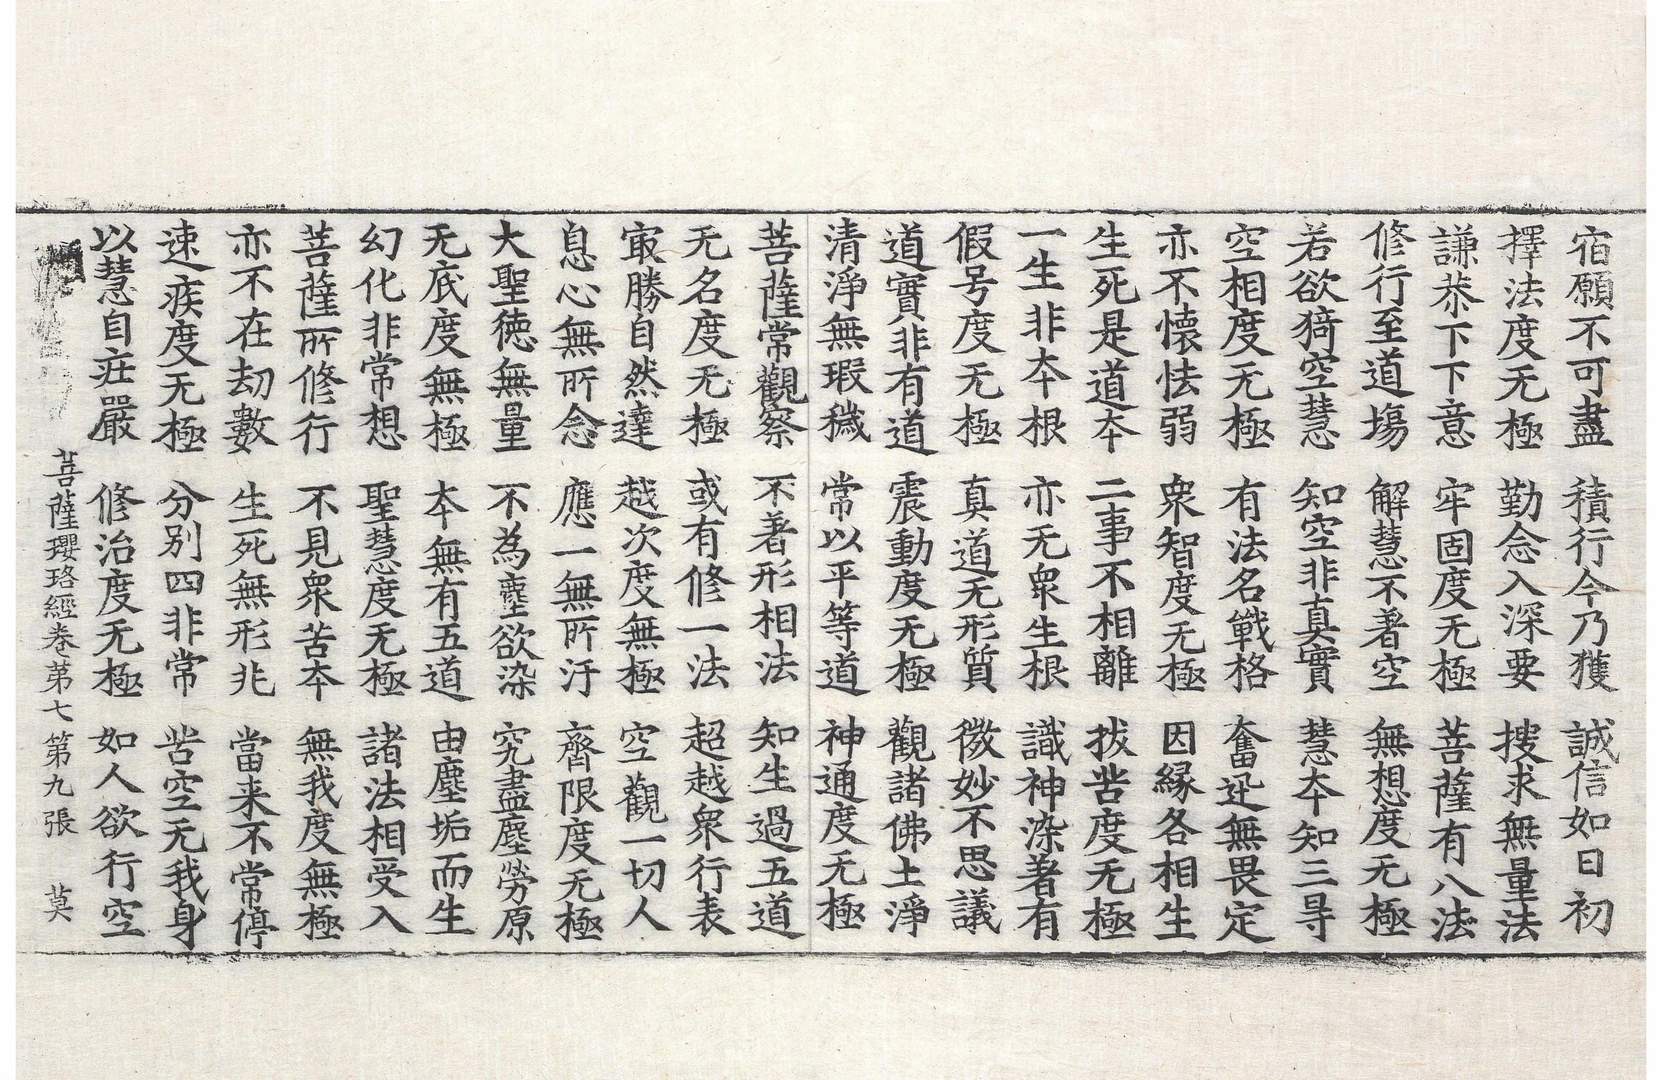 宿願不可盡　積行今乃獲　誠信如日初
擇法度无極　勤念入深要　搜求無量法
謙恭下下意　牢固度无極　菩薩有八法
修行至道場　解慧不著空　無想度无極
若欲猗空慧　知空非真實　慧夲知三㝵
空相度无極　有法名戰格　奮迅無畏定
亦不懷怯弱　衆智度无極　因緣各相生
生死是道夲　二事不相離　拔苦度无極
一生非夲根　亦无衆生根　識神染著有
假号度无極　真道无形質　微妙不思議
道實非有道　震動度无極　觀諸佛土淨
清淨無瑕穢　常以平等道　神通度无極
菩薩常觀察　不著形相法　知生過五道
无名度无極　或有修一法　超越衆行表
㝡勝自然達　越次度無極　空觀一切人
息心無所念　應一無所汙　齊限度无極
大聖德無量　不為塵欲染　究盡塵勞原
无底度無極　夲無有五道　由塵垢而生
幻化非常想　聖慧度无極　諸法相受入
菩薩所修行　不見衆苦夲　無我度無極
亦不在劫數　生死無形兆　當来不常停
速疾度无極　分別四非常　苦空无我身
以慧自莊嚴　修治度无極　如人欲行空
菩薩瓔珞經卷第七　第九張　莫